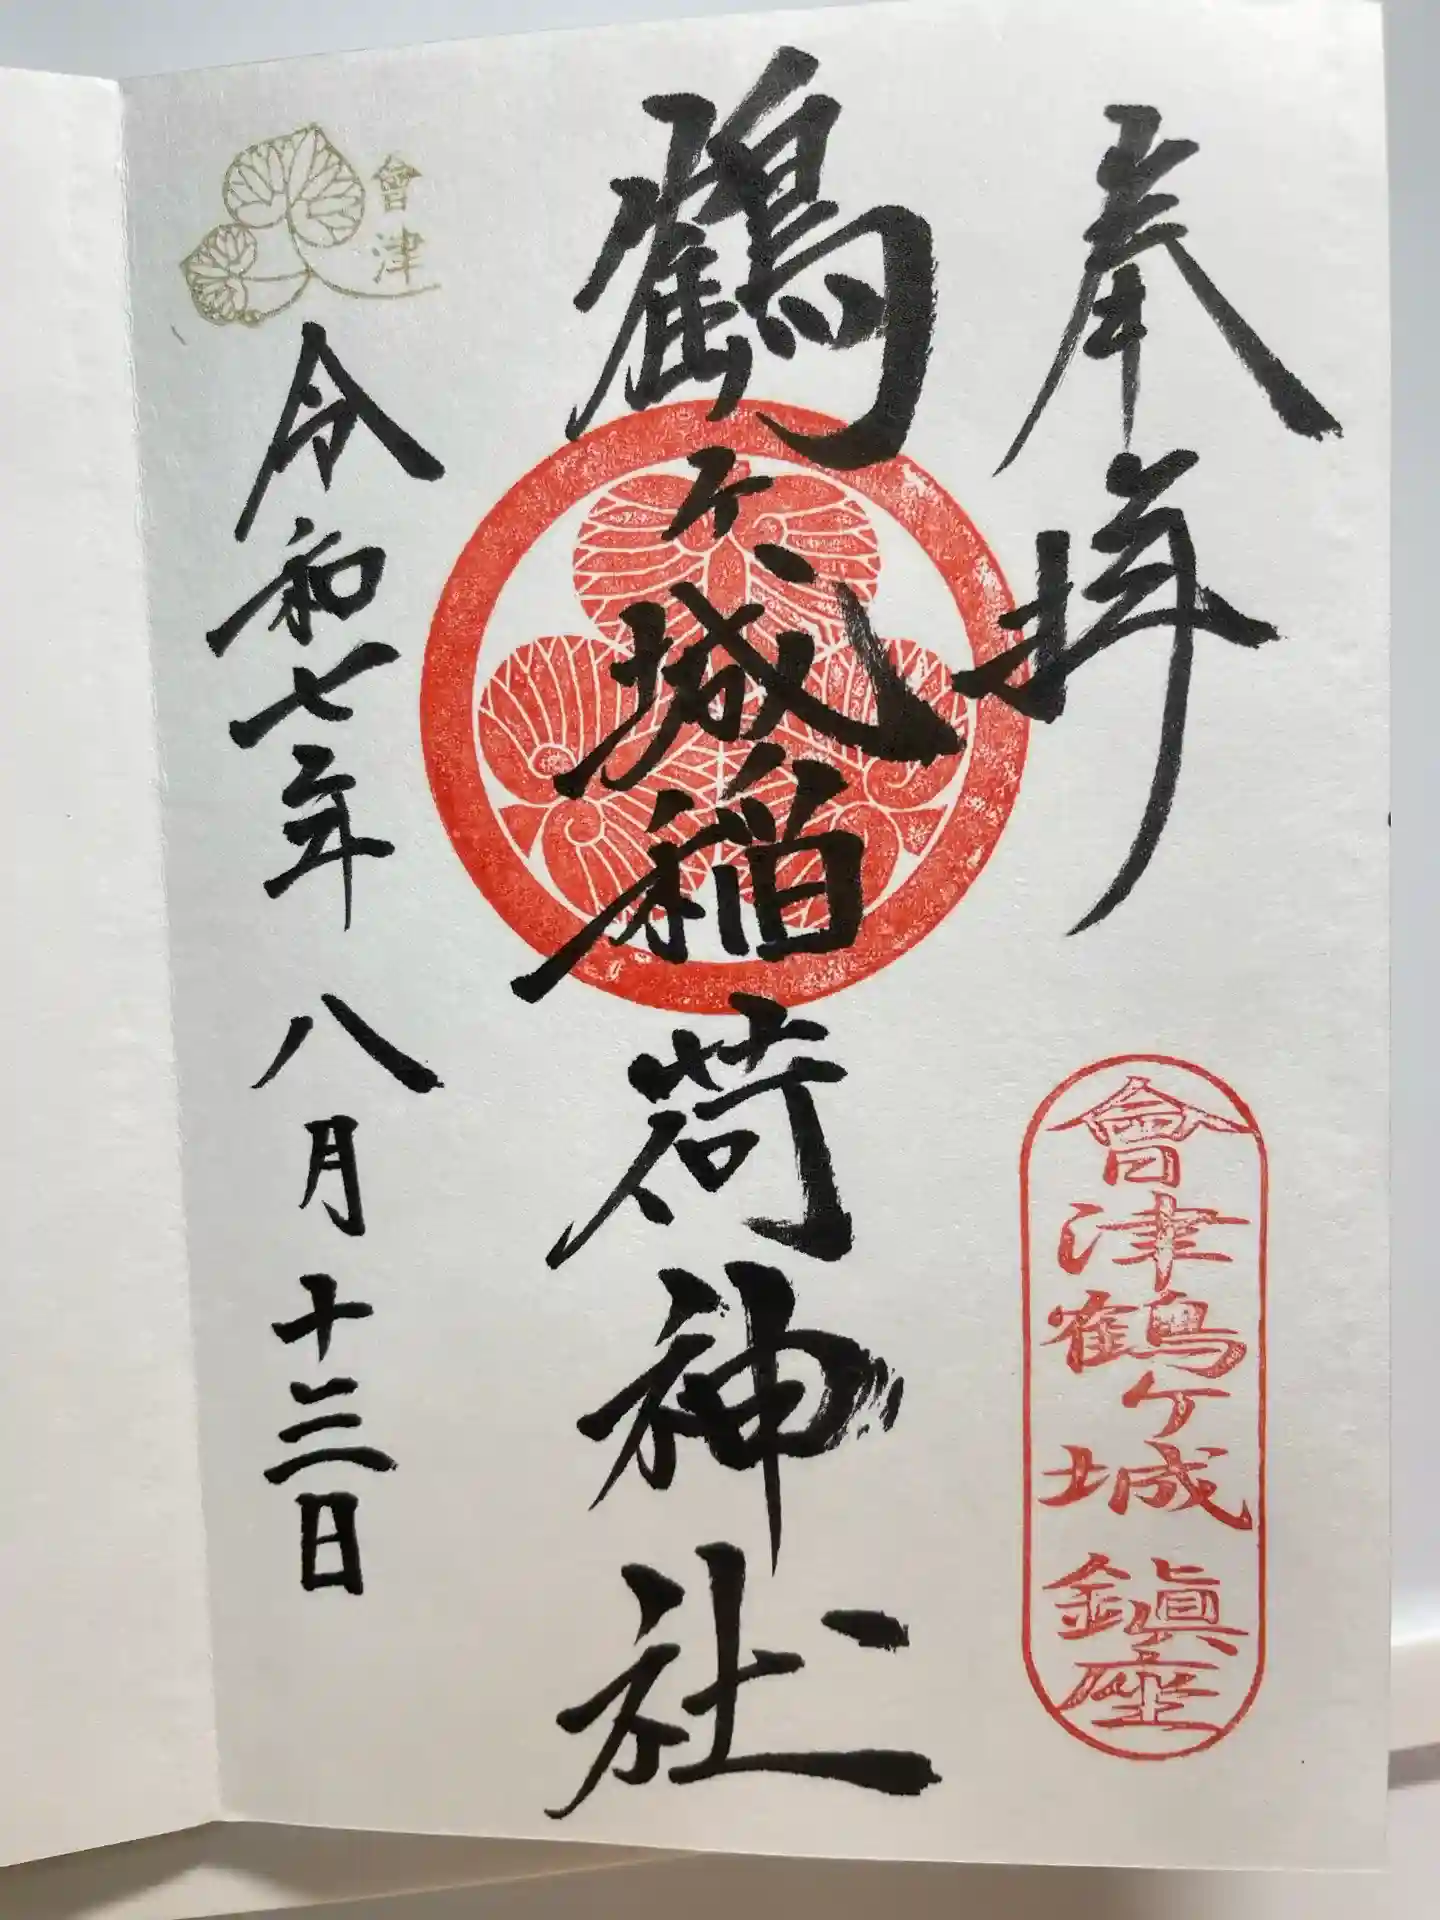 奉拝
會津鶴ケ城鎮座
鶴ケ城稲荷神社
會津
令和七年八月十三日